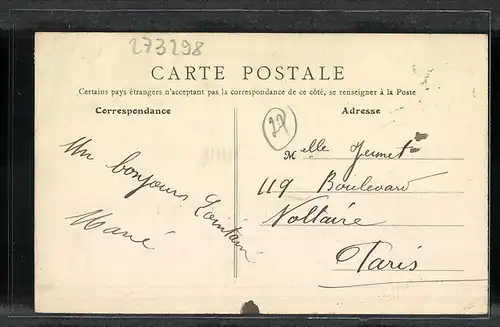 273298
CARTE POSTALE
Certains pays étrangers n'acceptant pas la correspondance de ce côté, se renseigner à la Poste
Correspondance
Adresse
Un bonjour Lointain
Marié
Melle Jeunet
119 Boulevard
Voltaire
Paris